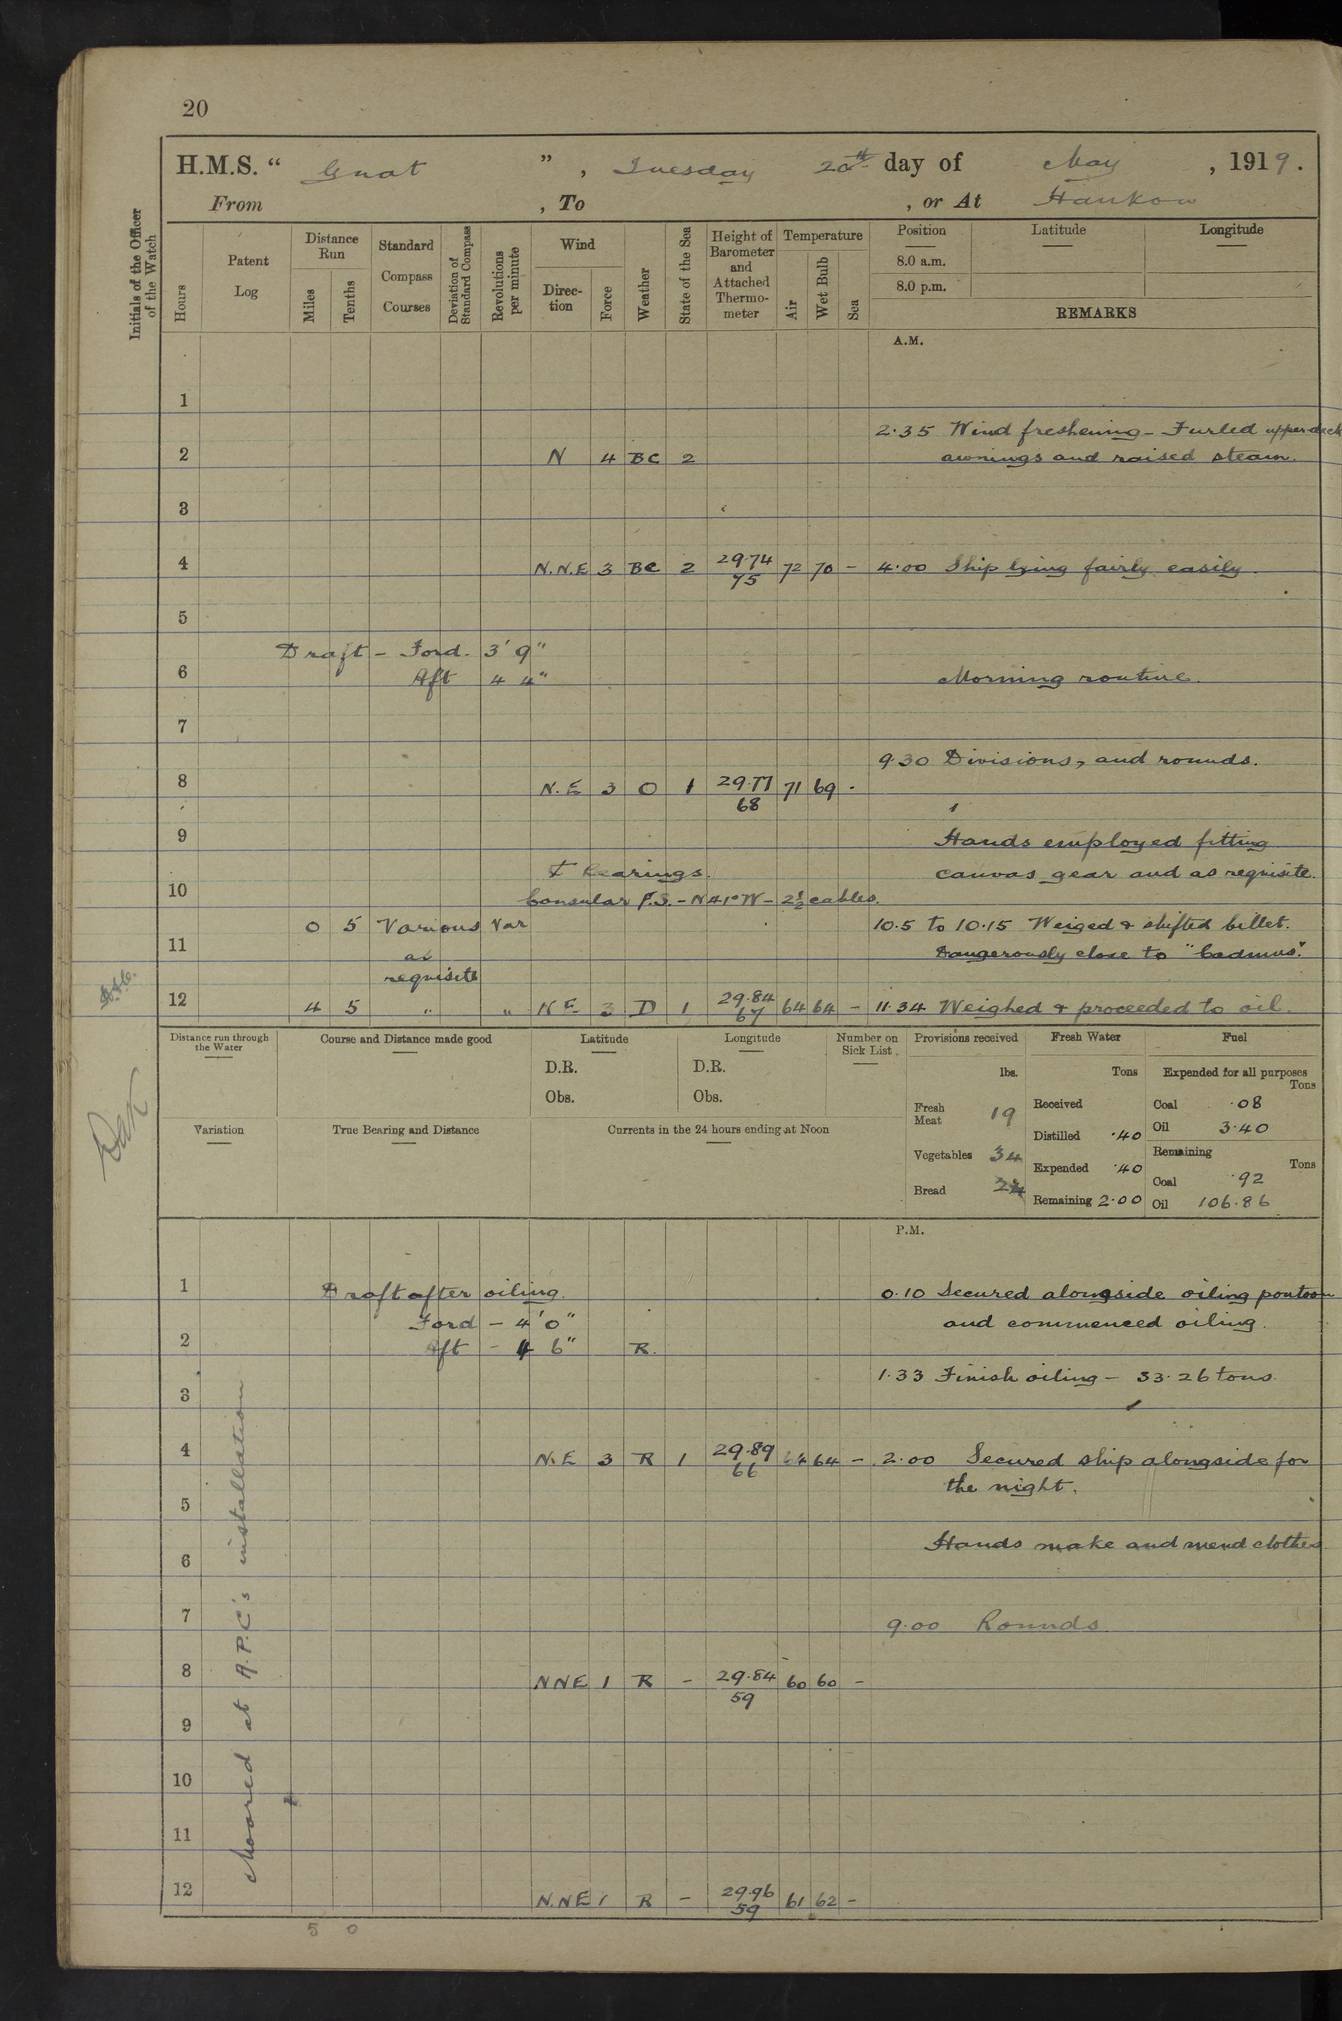 20
H.M.S. “ Gnat ”, Tuesday 20th day of May, 1919.
From , To , or At Hankow
Initials of the Officer of the Watch
Hours
Patent Log
Distance Run
Miles
Tenths
Standard Compass Courses
Deviation of Standard Compass
Revolutions per minute
Wind
Direc-tion
Force
Weather
State of the Sea
Height of Barometer and Attached Thermo-meter
Temperature
Air
Wet Bulb
Sea
Position
8.0 a.m.
8.0 p.m.
Latitude
Longitude
REMARKS
A.M.
1
2·35 Wind freshening - Furled upper deck
2 N 4 BC 2 awnings and raised steam.
3
4 N.N.E 3 BC 2 29·74 75 72 70 - 4·00 Ship lying fairly easily.
5
Draft - Ford. 3' 9"
6 Aft 4 4" Morning routine.
7
9·30 Divisions, and rounds.
8 N.E 3 O 1 29·77 68 71 69 -
9 Hands employed fitting
Bearings. canvas gear and as requisite.
10 Consular F.S. - N41°W - 2½ cables.
0 5 Various Var 10·5 to 10·15 Weiged & shifted billet.
11 as Dangerously close to "Cadmus".
requisite
12 4 5 " " NE 3 D 1 29·84 67 64 64 - 11·34 Weighed & proceeded to oil.
Distance run through the Water
Course and Distance made good
Latitude
D.R.
Obs.
Longitude
D.R.
Obs.
Number on Sick List
Provisions received
lbs.
Fresh Meat 19
Vegetables 34
Bread
Fresh Water
Tons
Received
Distilled ·40
Expended ·40
Remaining 2·00
Fuel
Expended for all purposes
Tons
Coal ·08
Oil 3·40
Remaining
Tons
Coal ·92
Oil 106·86
Variation
True Bearing and Distance
Currents in the 24 hours ending at Noon
P.M.
1 Draft after oiling. 0·10 Secured alongside oiling pontoon
Ford - 4' 0" and commenced oiling.
2 Aft - 4 6" R.
1·33 Finish oiling - 33·26 tons.
3
4 N.E 3 R 1 29·89 66 64 64 - 2·00 Secured ship alongside for
the night.
5
Hands make and mend clothes
6
7 9·00 Rounds.
8 NNE 1 R - 29·84 59 60 60 -
9
10
11
12 N.NE 1 R - 29·96 59 61 62 -
5 0
Moored at A.P.C's installation